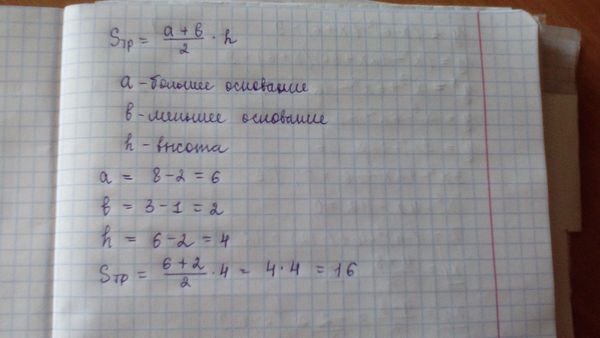 Sтр = (a + b)/2 · h
a - большее основание
b - меньшее основание
h - высота
a = 8 - 2 = 6
b = 3 - 1 = 2
h = 6 - 2 = 4
Sтр = (6 + 2)/2 · 4 = 4 · 4 = 16